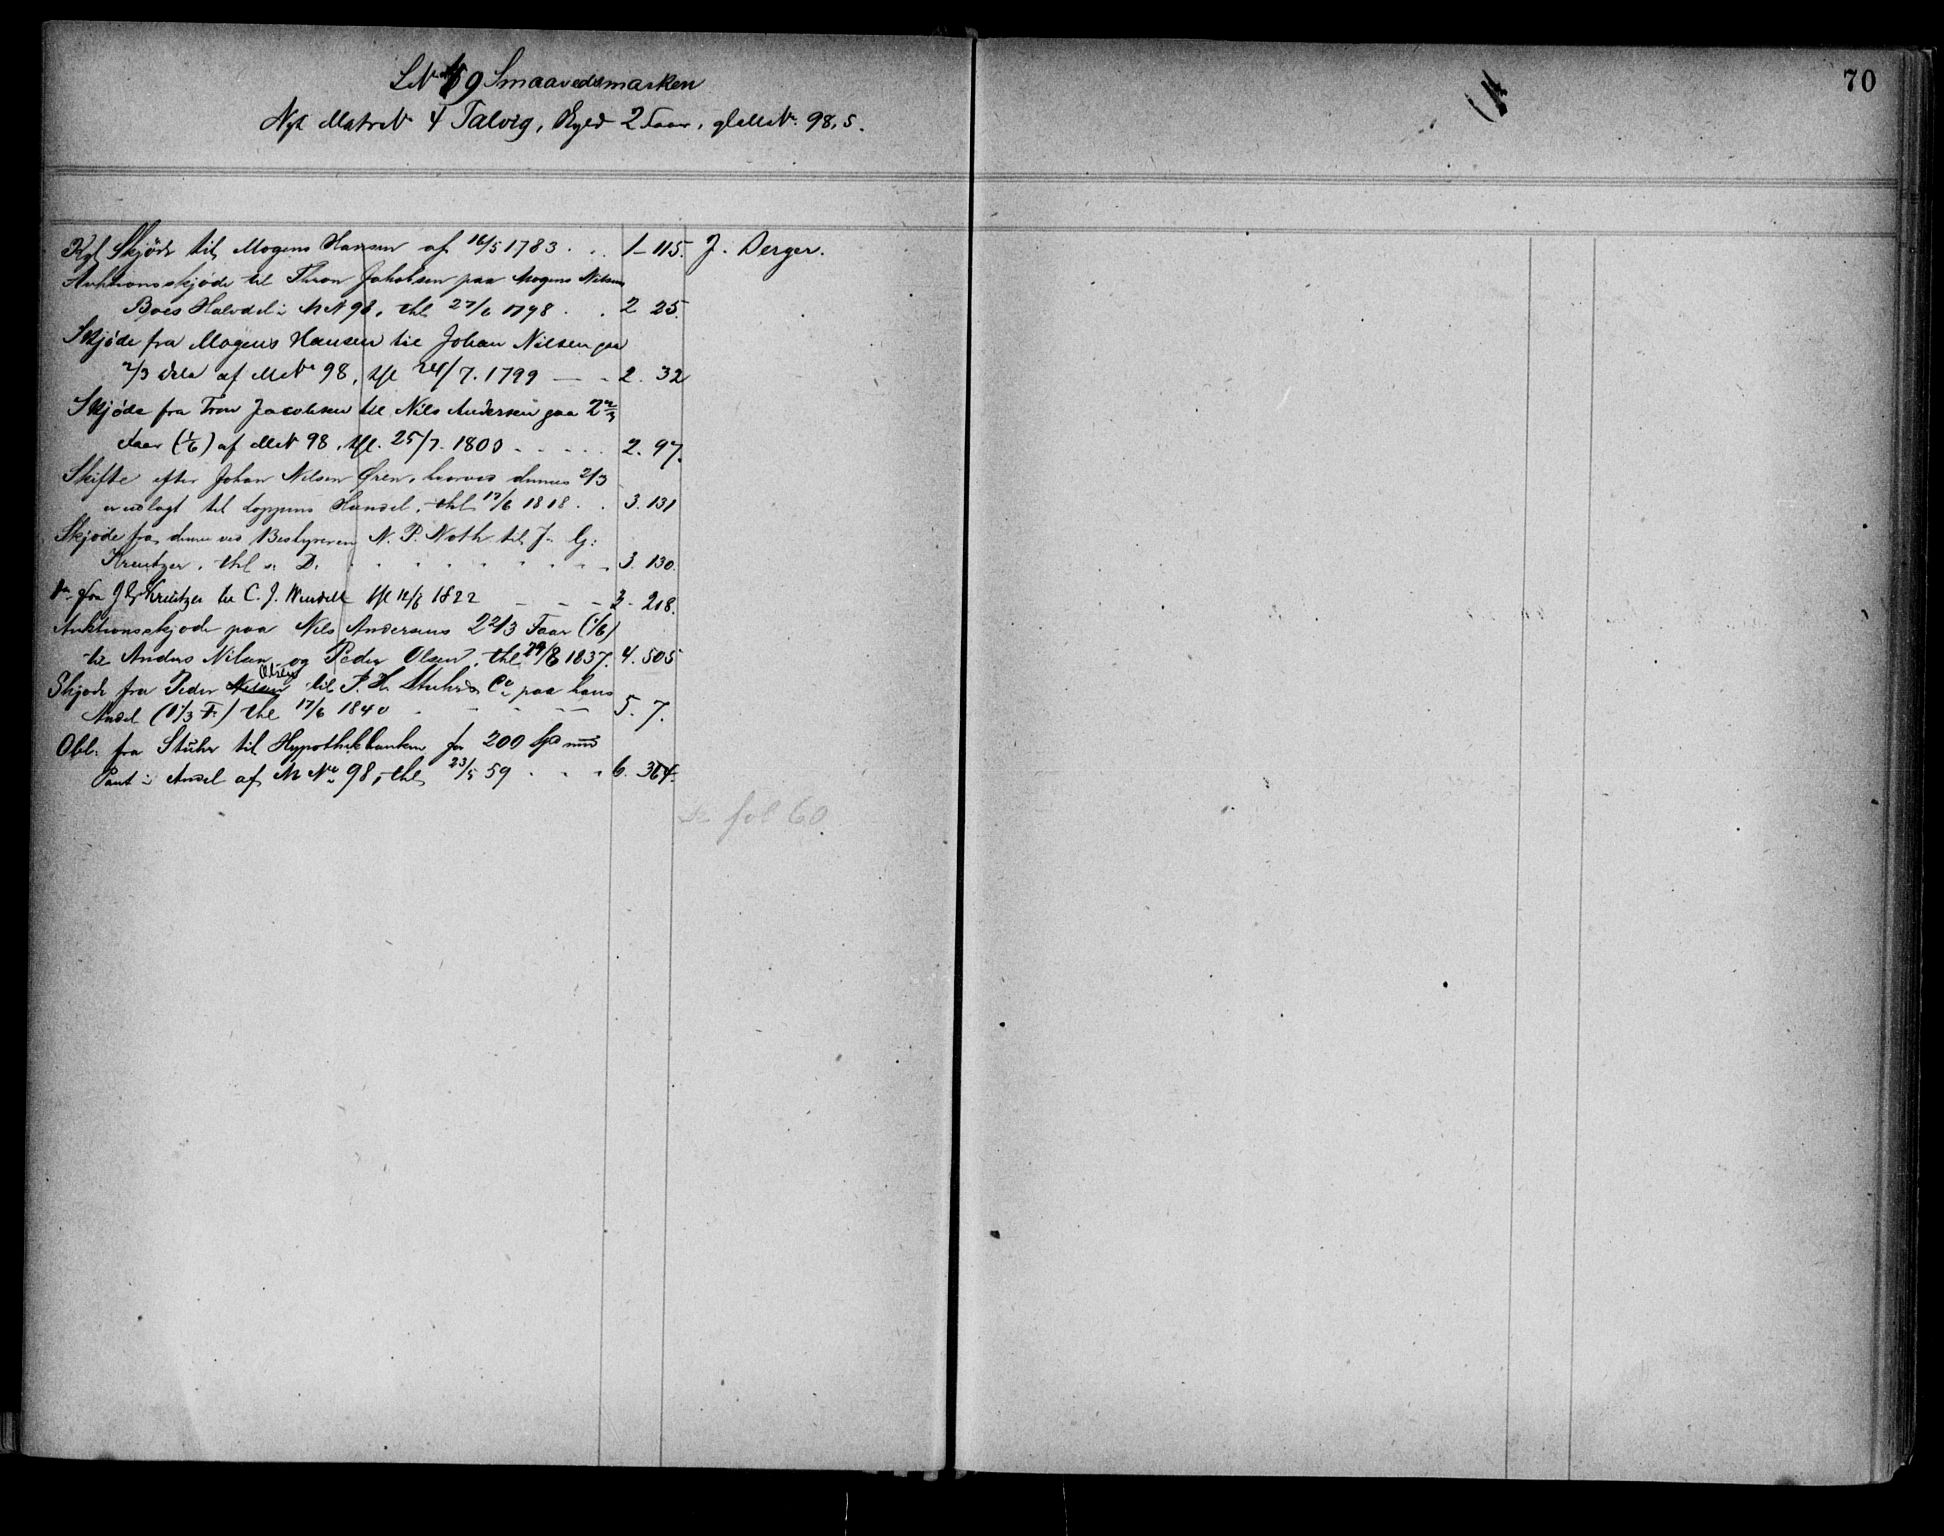 LN 69 Smaavedmarken
Nyt Matr N 4 Talvig, Skyld 2 Faar, gl M.N. 98,5.
70
Kgl Skjøde til Mogens Hansen af 16/5 1783 . . 1 - 115. J. Berger.
Auktionsskjøde til Thron Jakobsen paa Mogens Nilsens
Boes Halvdel i M N 98, thl 27/6 1798 . . 2 25.
Skjøde fra Mogens Hansen til Johan Nilsen paa
2/3 dele af M No 98, thl 24/7. 1799 — - 2. 32
Skjøde fra Tron Jacobsen til Nils Andersen paa 2 2/3
Faar (1/6) af M N 98, thl. 25/7. 1800 - - - . . 2. 97.
Skifte efter Johan Nilsen Øren, hvorved dennes 2/3
er udlagt til Loppens Handel, thl 17/6 1818 . . 3. 131
Skjøde fra denne ved Bestyreren N. P. Noth til J. G.
Kreutzer, thl s. D. . . . . . . . 3. 130.
Do fra J G Kreutzer til C. J. Wendelb thl 12/6 1822 - - - 3 - 218.
Auktionsskjøde paa Nils Andersens 2 2/3 Faar (1/6)
til Anders Nilsen og Peder Olsen, thl 29/6 1837. 4. 505
Skjøde fra Peder Nilsen Olsen til P. H. Stuhrs Co paa hans
Andel (1 1/3 F.) thl 17/6 1840 - - - — 5. 7.
Obl. fra Stuhr til Hypothekbanken for 200 Spd med
Pant i Andel af M No 98, thl 23/5 59 . . . 6. 364.
se fol 60